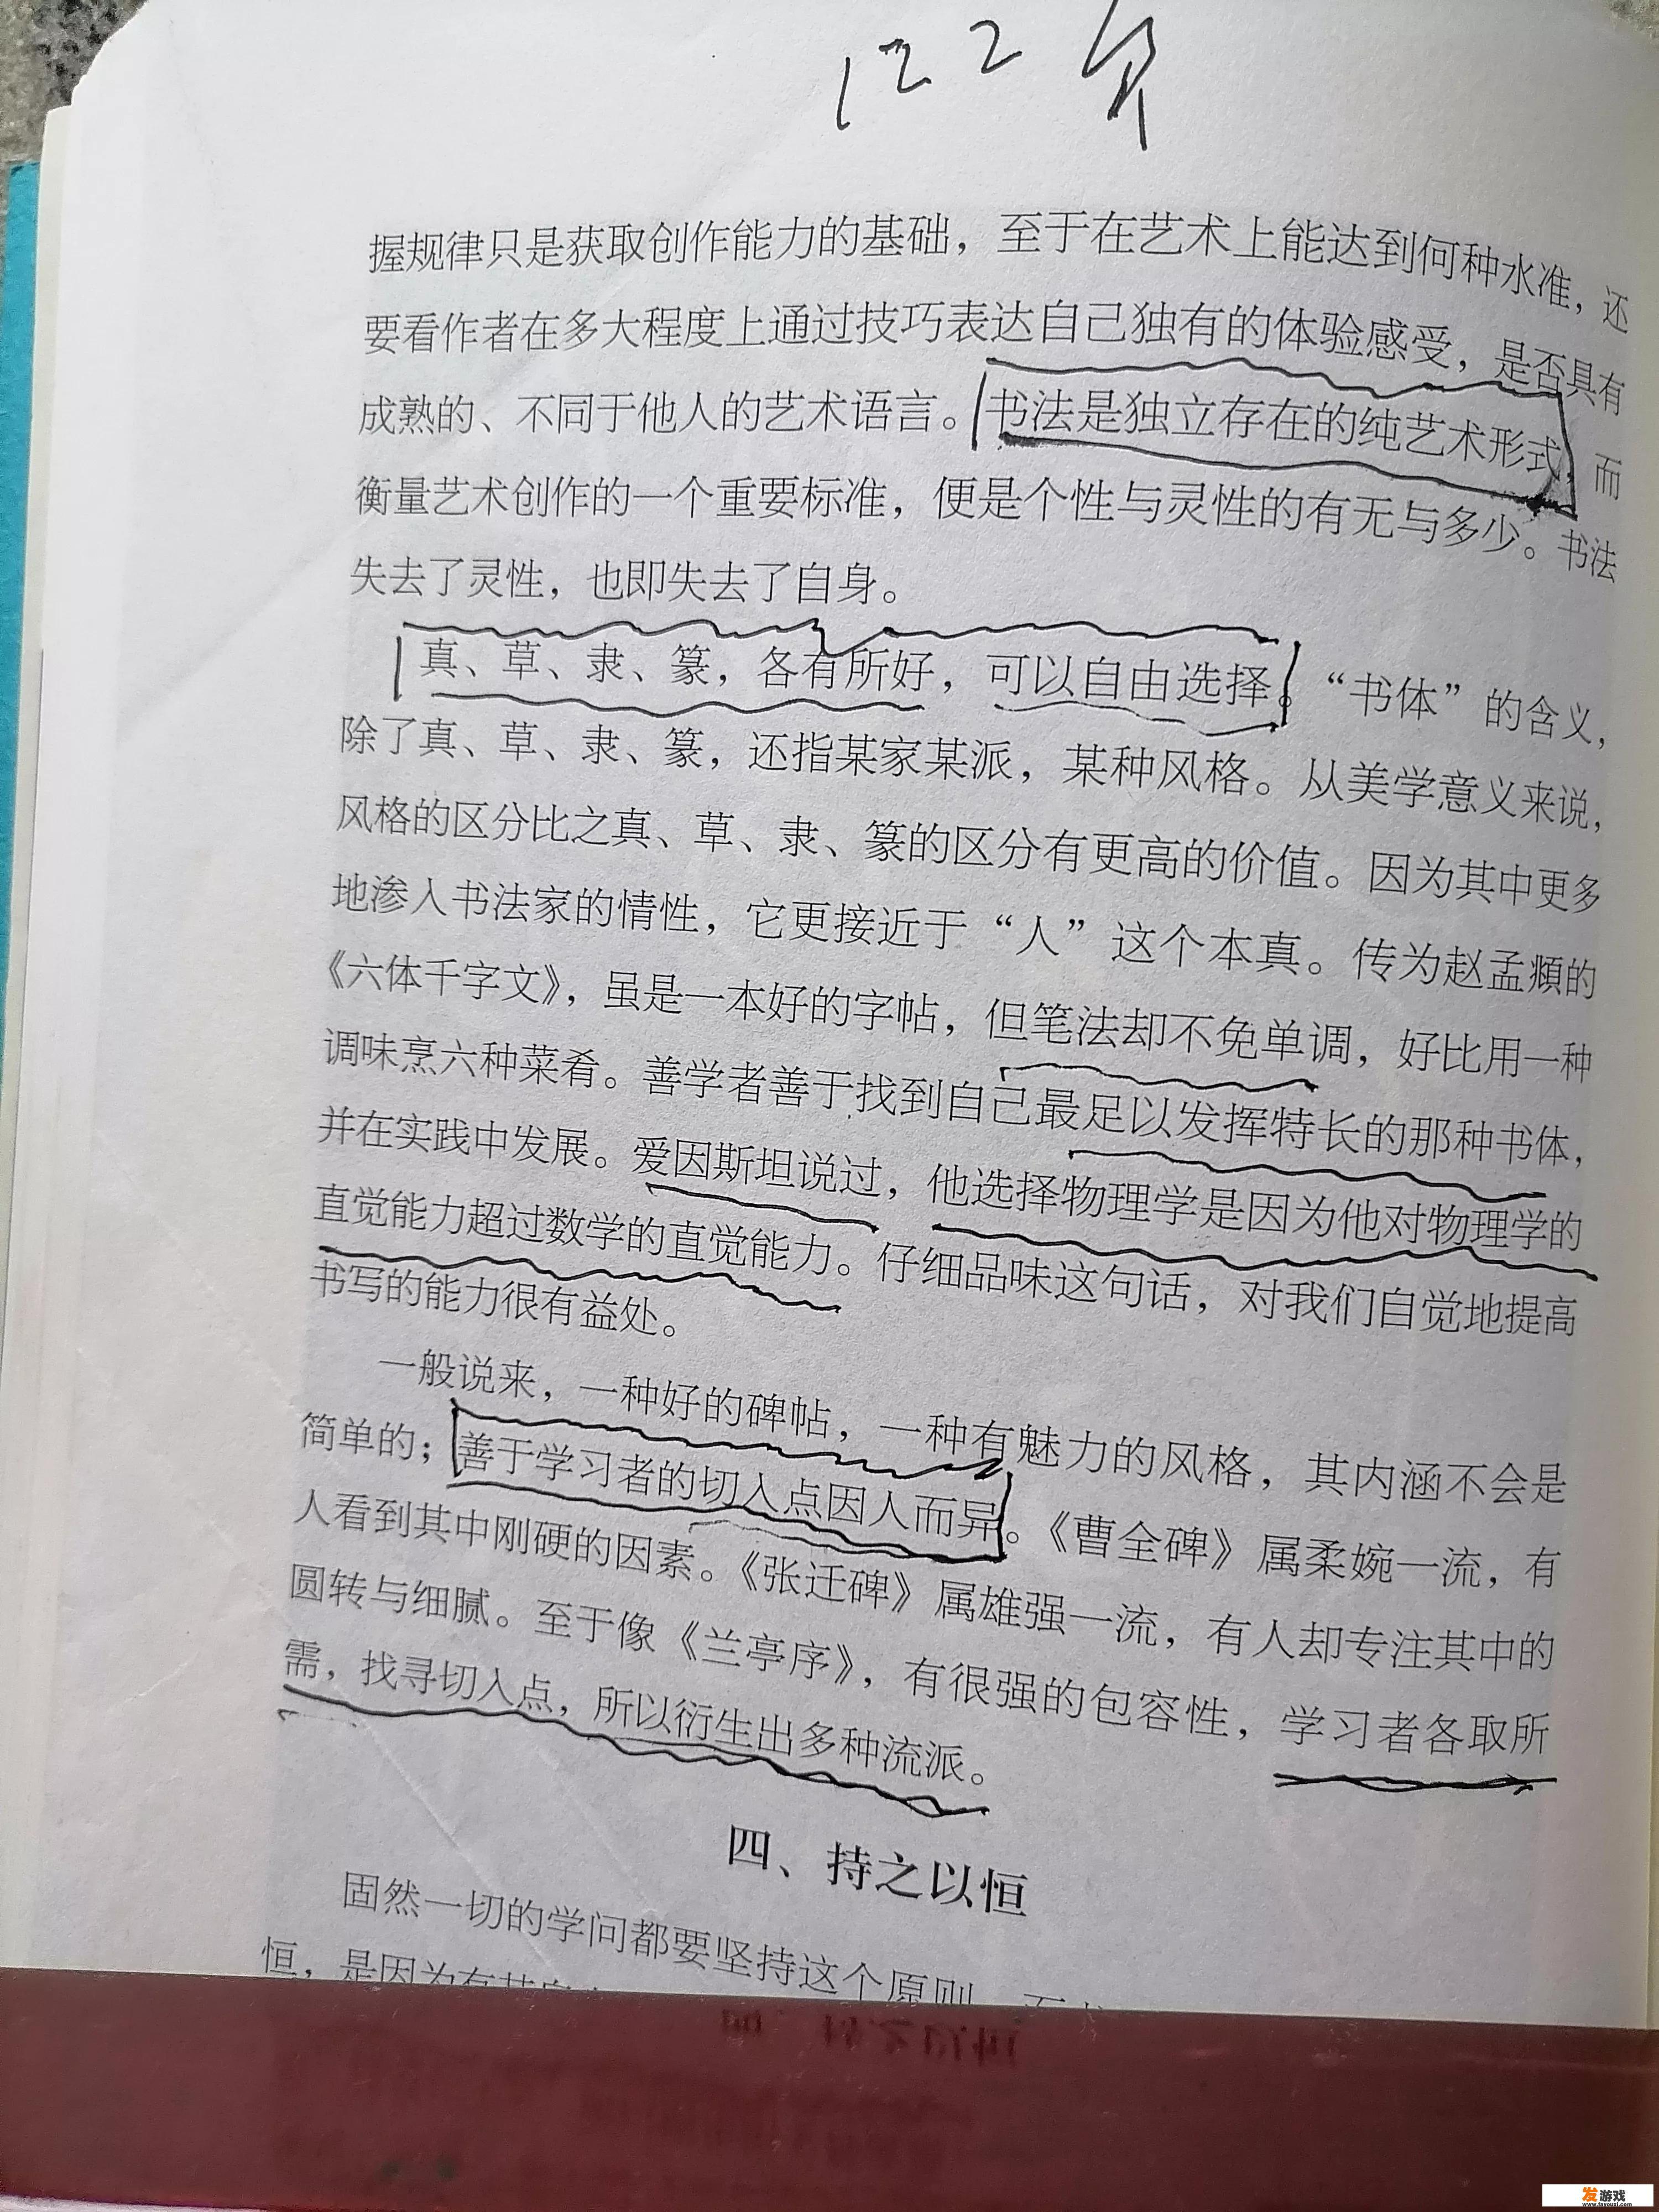 122页
握规律只是获取创作能力的基础，至于在艺术上能达到何种水准，还
要看作者在多大程度上通过技巧表达自己独有的体验感受，是否具有
成熟的、不同于他人的艺术语言。书法是独立存在的纯艺术形式，而
衡量艺术创作的一个重要标准，便是个性与灵性的有无与多少。书法
失去了灵性，也即失去了自身。
真、草、隶、篆，各有所好，可以自由选择。“书体”的含义，
除了真、草、隶、篆，还指某家某派，某种风格。从美学意义来说，
风格的区分比之真、草、隶、篆的区分有更高的价值。因为其中更多
地渗入书法家的情性，它更接近于“人”这个本真。传为赵孟頫的
《六体千字文》，虽是一本好的字帖，但笔法却不免单调，好比用一种
调味烹六种菜肴。善学者善于找到自己最足以发挥特长的那种书体，
并在实践中发展。爱因斯坦说过，他选择物理学是因为他对物理学的
直觉能力超过数学的直觉能力。仔细品味这句话，对我们自觉地提高
书写的能力很有益处。
一般说来，一种好的碑帖，一种有魅力的风格，其内涵不会是
简单的；善于学习者的切入点因人而异。《曹全碑》属柔婉一流，有
人看到其中刚硬的因素。《张迁碑》属雄强一流，有人却专注其中的
圆转与细腻。至于像《兰亭序》，有很强的包容性，学习者各取所
需，找寻切入点，所以衍生出多种流派。
四、持之以恒
固然一切的学问都要坚持这个原则
恒，是因为有其
发游戏